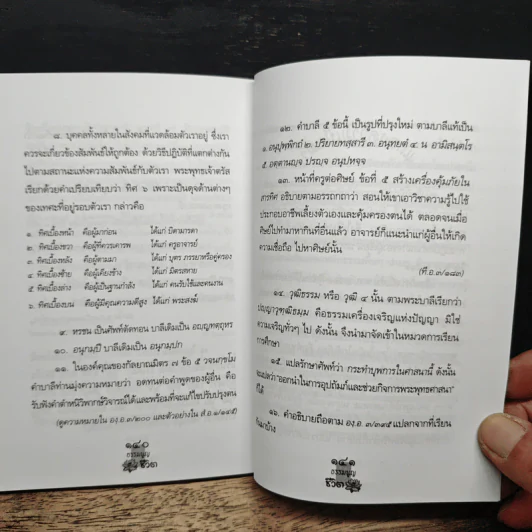 ๘. บุคคลทั้งหลายในสังคมที่แวดล้อมตัวเราอยู่ ซึ่งเรา
ควรจะเกี่ยวข้องสัมพันธ์ให้ถูกต้อง ด้วยวิธีปฏิบัติที่แตกต่างกัน
ไปตามสถานะแห่งความสัมพันธ์กับตัวเรา พระพุทธเจ้าตรัส
เรียกด้วยคำเปรียบเทียบว่า ทิศ ๖ เพราะเป็นดุจด้านต่างๆ
ของเทศะที่อยู่รอบตัวเรา กล่าวคือ
๑. ทิศเบื้องหน้า คือผู้มาก่อน ได้แก่ บิดามารดา
๒. ทิศเบื้องขวา คือผู้ที่ควรเคารพ ได้แก่ ครูอาจารย์
๓. ทิศเบื้องหลัง คือผู้ตามมา ได้แก่ บุตร ภรรยาหรือคู่ครอง
๔. ทิศเบื้องซ้าย คือผู้เคียงข้าง ได้แก่ มิตรสหาย
๕. ทิศเบื้องล่าง คือผู้เป็นฐานกำลัง ได้แก่ คนรับใช้และคนงาน
๖. ทิศเบื้องบน คือผู้มีคุณความดีสูง ได้แก่ พระสงฆ์
๙. หรชน เป็นศัพท์ตัดทอน บาลีเดิมเป็น อญฺญทตฺถุหร
๑๐. อนุกมฺปี บาลีเดิมเป็น อนุกมฺปก
๑๑. ในองค์คุณของกัลยาณมิตร ๗ ข้อ ๕ วจนกฺขโม
คำบาลีท่านมุ่งความหมายว่า อดทนต่อคำพูดของผู้อื่น คือ
รับฟังคำตำหนิวิพากษ์วิจารณ์ได้และพร้อมที่จะแก้ไขปรับปรุงตน
(ดูความหมายใน องฺ.อ.๓/๒๐๐ และตัวอย่างใน สํ.อ.๑/๑๙๕)
๑๔๐
ธรรมนูญ
ชีวิต
๑๒. คำบาลี ๕ ข้อนี้ เป็นรูปที่ปรุงใหม่ ตามบาลีแท้เป็น
๑. อนุปุพฺพิกถํ ๒. ปริยายทสฺสาวี ๓. อนุทยตํ ๔. น อามิสนฺตโร
๕. อตฺตานญฺจ ปรญฺจ อนุปหจฺจ
๑๓. หน้าที่ครูต่อศิษย์ ข้อที่ ๕ สร้างเครื่องคุ้มภัยใน
สารทิศ อธิบายตามอรรถกถาว่า สอนให้เขาเอาวิชาความรู้ไปใช้
ประกอบอาชีพเลี้ยงตัวเองและคุ้มครองตนได้ ตลอดจนเมื่อ
ศิษย์ไปทำมาหากินที่อื่นแล้ว อาจารย์ก็แนะนำแก่ผู้อื่นให้เกิด
ความเชื่อถือ ไปหาศิษย์นั้น
(ที.อ.๓/๑๘๓)
๑๔. วุฒิธรรม หรือ วุฒิ ๔ นั้น ตามพระบาลีเรียกว่า
ปญฺญาวุฑฺฒิธมฺม คือธรรมเครื่องเจริญแห่งปัญญา มิใช่
ความเจริญทั่วๆ ไป ดังนั้น จึงนำมาจัดเข้าในหมวดการเรียน
การศึกษา
๑๕. แปลรักษาศัพท์ว่า กระทำบุพการในศาสนานี้ ดังนั้น
จะแปลว่า “ออกนำในการอุปถัมภ์และช่วยกิจการพระพุทธศาสนา”
ก็ได้
๑๖. คำอธิบายถือตาม องฺ.อ. ๓/๓๙๕ แปลกจากที่เรียน
กันบ้าง
๑๔๑
ธรรมนูญ
ชีวิต